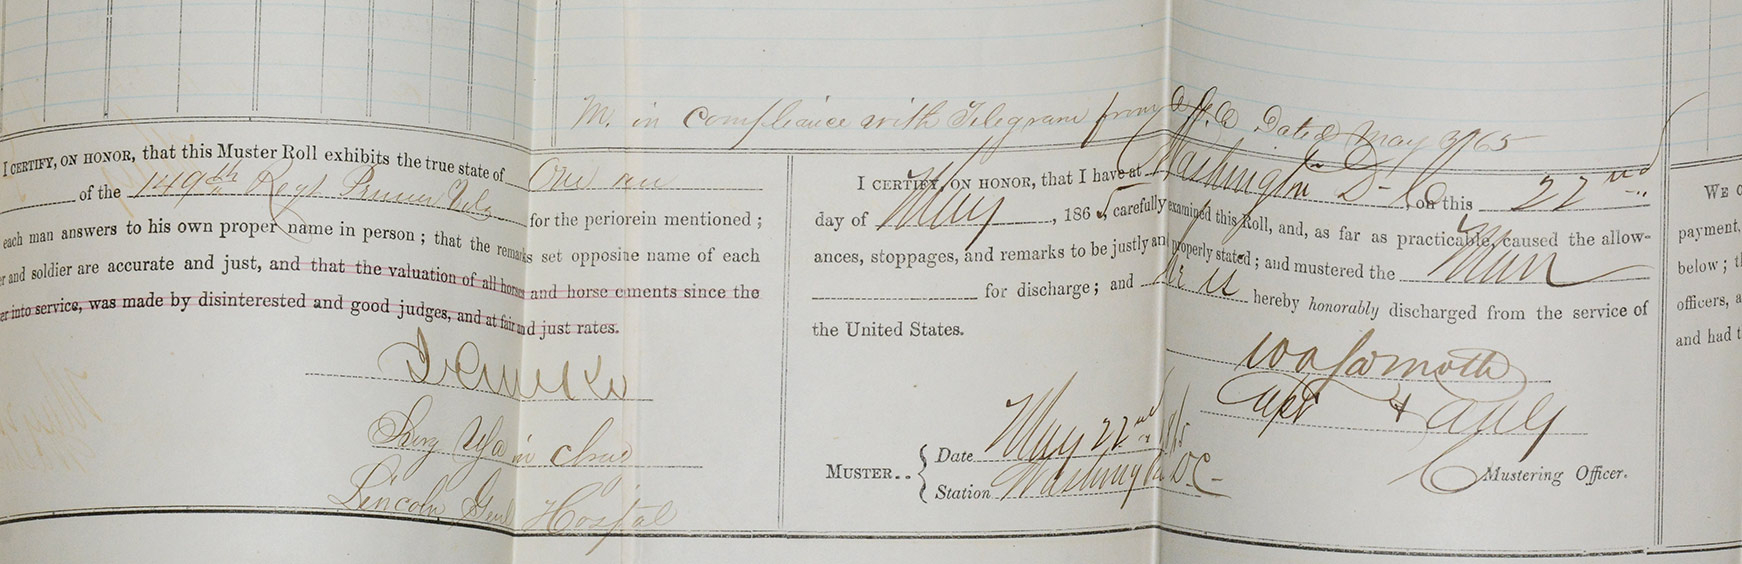 M. in compliance with Telegram from A.G.O. Dated May 3/65
I CERTIFY, ON HONOR, that this Muster Roll exhibits the true state of One
of the 149th Regt Penna Vols for the periorein mentioned;
each man answers to his own proper name in person; that the remarks set opposine name of each
er and soldier are accurate and just, and that the valuation of all horses and horse ements since the
er into service, was made by disinterested and good judges, and at fair and just rates.
Surg USA in chrg
Lincoln Genl Hospital
I CERTIFY, ON HONOR, that I have at Washington D.C., on this 22nd
day of May, 1865, carefully examined this Roll, and, as far as practicable, caused the allow-
ances, stoppages, and remarks to be justly and properly stated; and mustered the Man
for discharge; and he is hereby honorably discharged from the service of
the United States.
Capt &
Mustering Officer.
MUSTER.. { Date May 22nd 1865
Station Washington DC
WE C
payment,
below; t
officers, a
and had t